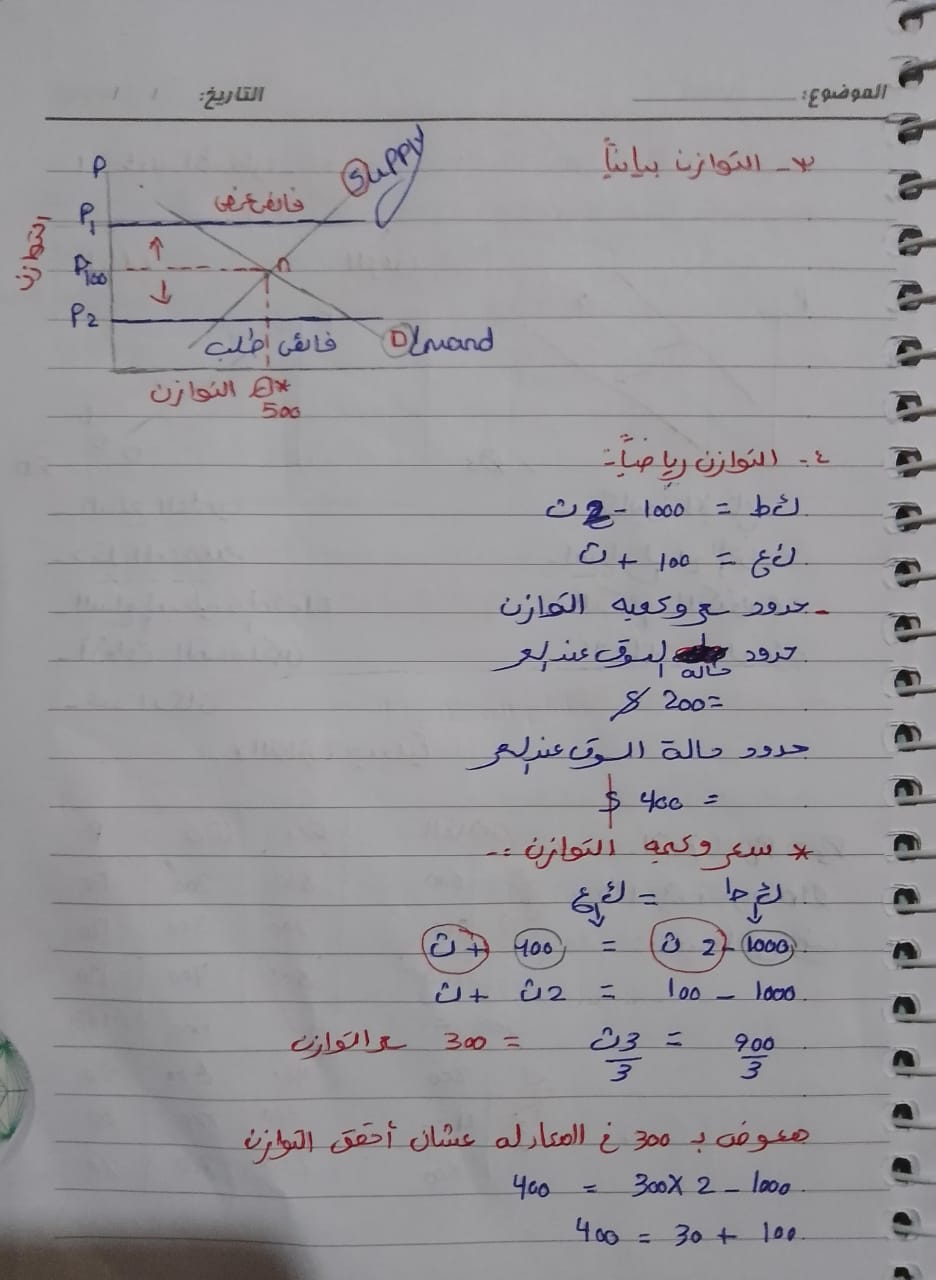 الموضوع: التاريخ: / /
٣- التوازن بيانيًا
P
Supply
P1
فائض عرض
التوازن
P100
n
P2
فائض طلب
Demand
التوازن Q*
500
٤- التوازن رياضيًا:-
ك ط = 1000 - 2 ث
ك ع = 100 + ث
- حدود سعر وكميه التوازن
حدود حالة السوق عند السعر
= 200 $
حدود حالة السوق عند السعر
= 400 $
* سعر وكميه التوازن :-
ك ط = ك ع
1000 - 2 ث = 100 + ث
1000 - 100 = 2 ث + ث
900/3 = 3 ث/3 = 300 سعر التوازن
هعوض بـ 300 في المعادله عشان أحقق التوازن
1000 - 2 × 300 = 400
100 + 30 = 400